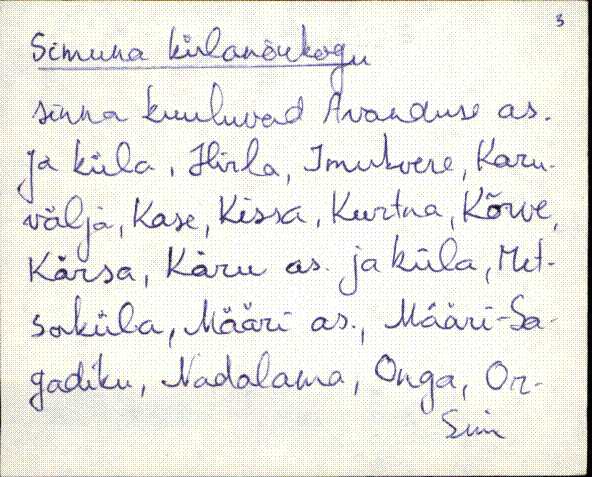 3
Simuna külanõukogu
sinna kuuluvad Avanduse as.
ja küla, Hirla, Imukvere, Karu-
välja, Kase, Kissa, Kurtna, Kõrve,
Kärsa, Käru as. ja küla, Met-
saküla, Määri as., Määri-Sa-
gadiku, Nadalama, Onga, Or-
Sim